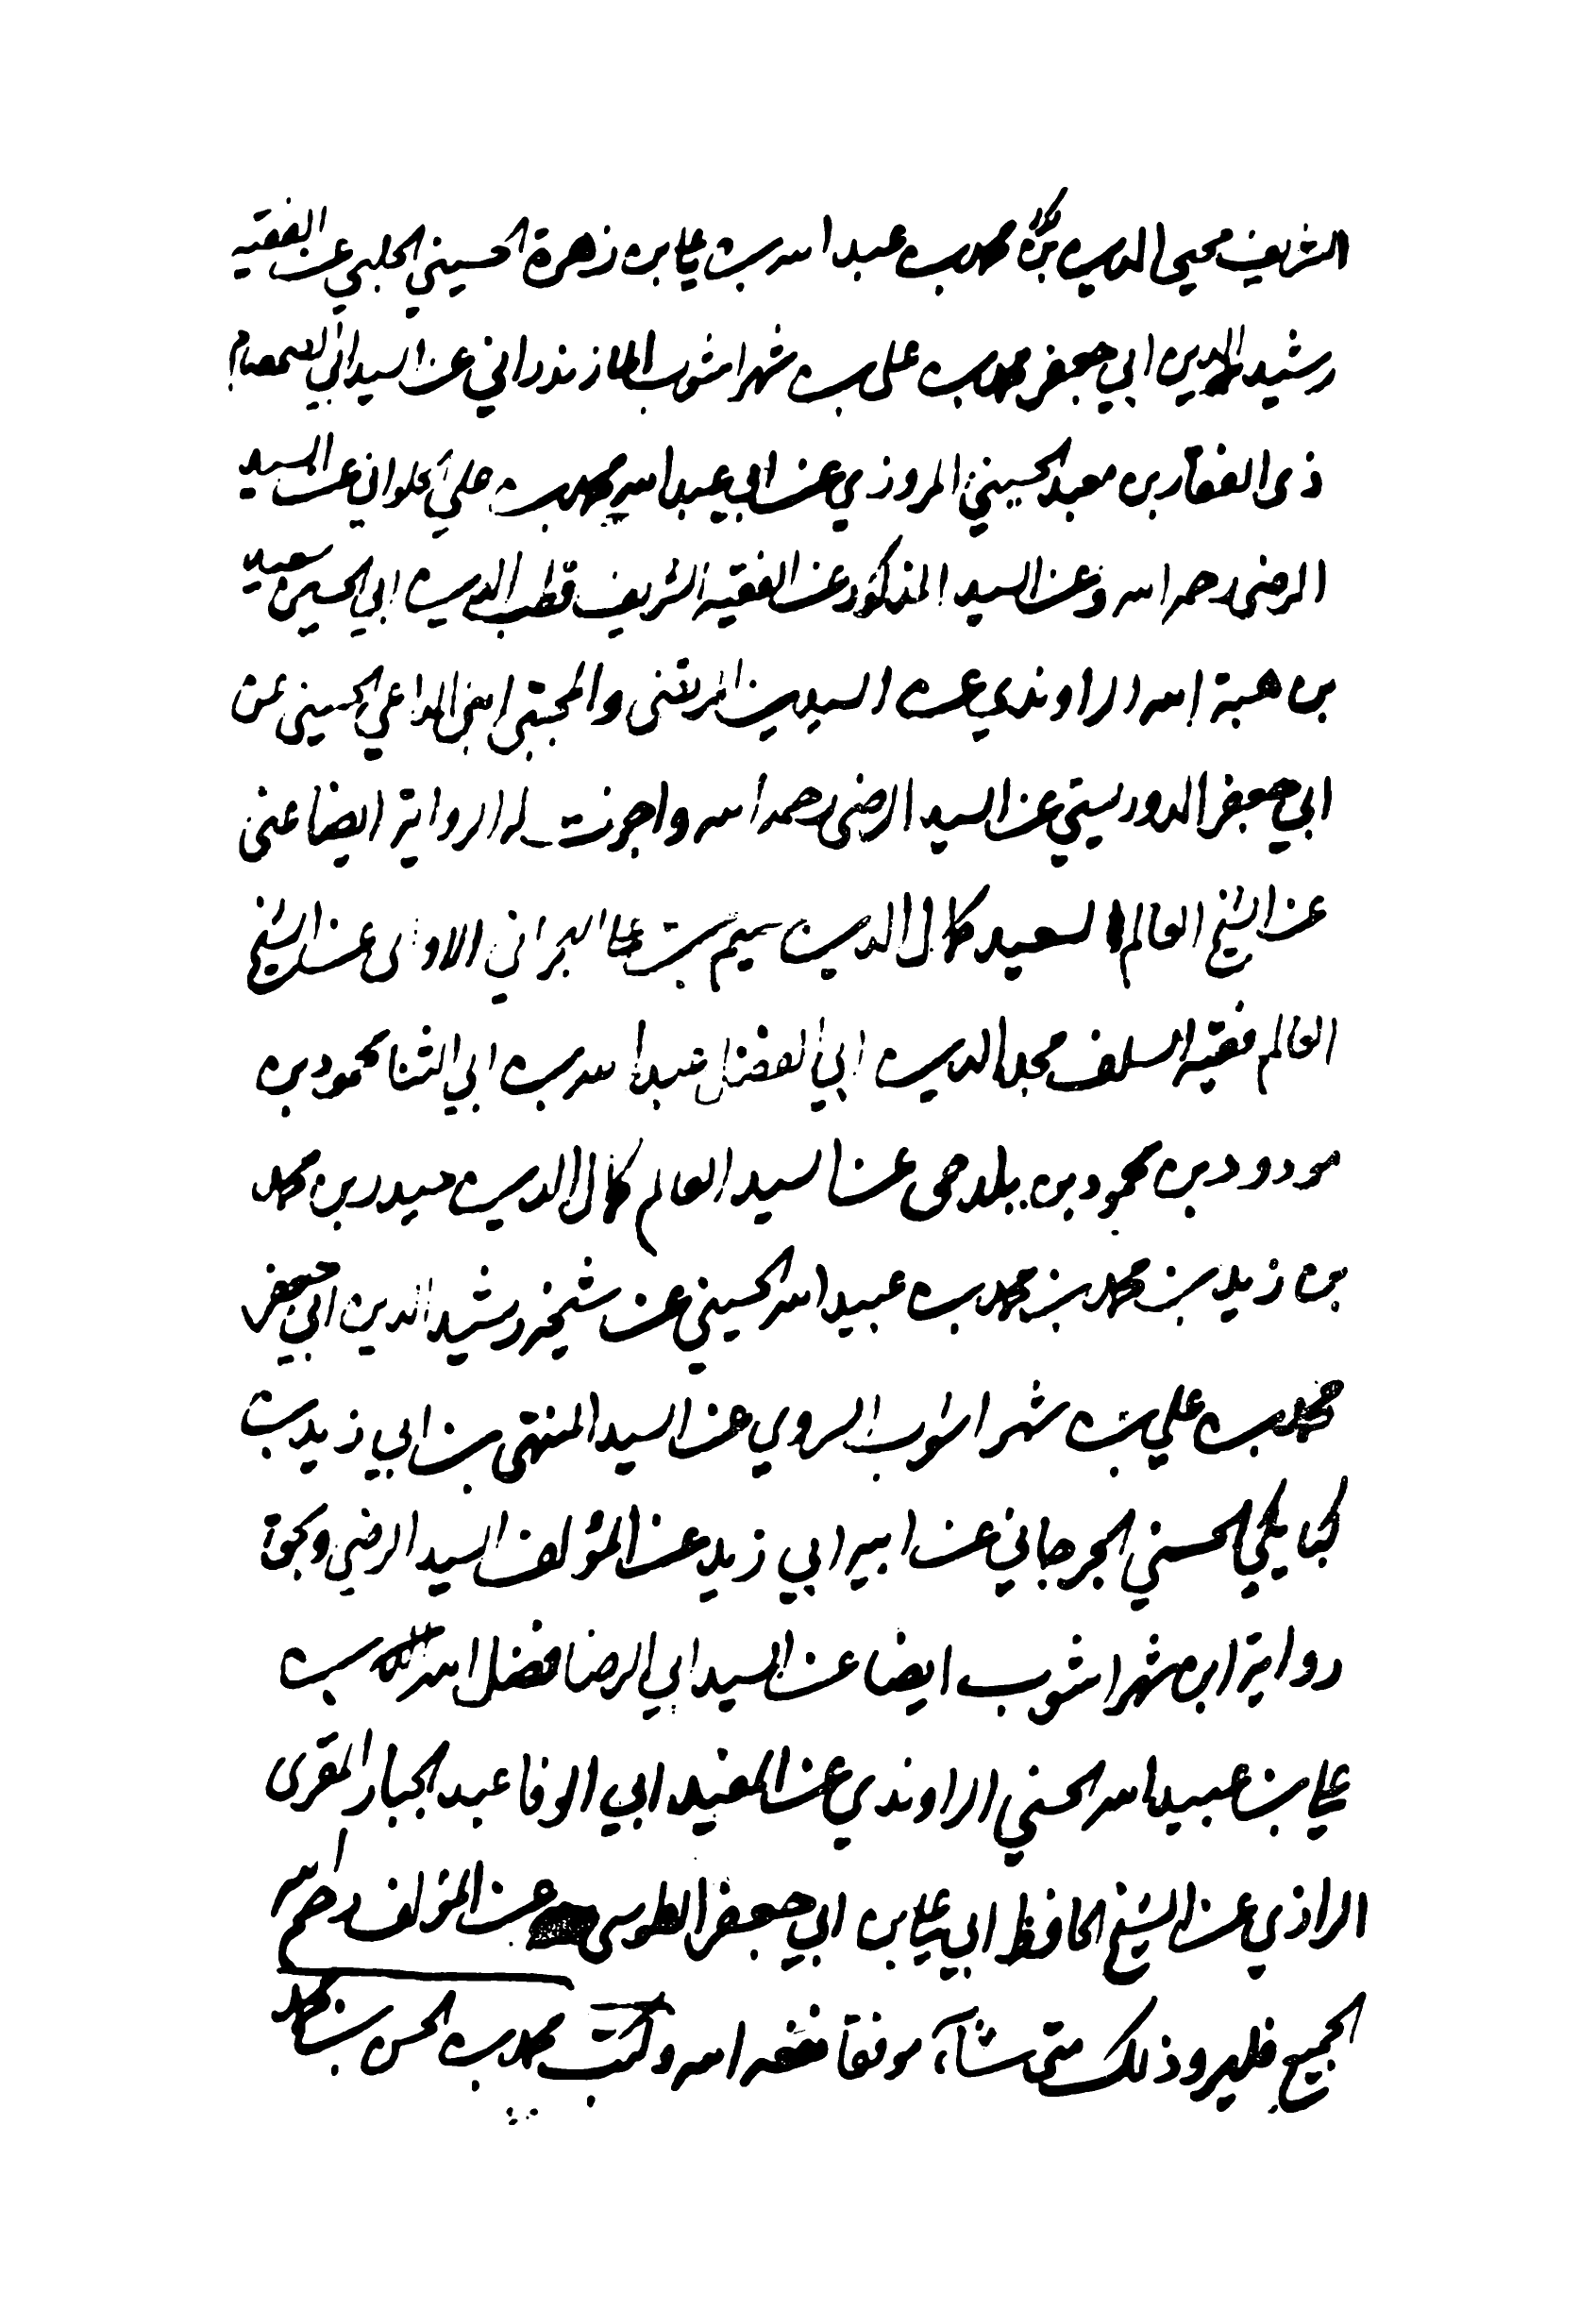 الشريف محيى الدين محمد بن عبد الله بن علي بن زهرة الحسيني الحلبي عن الفقيه
رشيد الدين ابي جعفر محمد بن علي بن شهراشوب المازندراني عن السيد ابي الصمصام
ذى الفقار بن معبد الحسيني المروزي عن ابي عبد الله محمد بن علي الحلواني عن السيد
الرضى رحمه الله وعن السيد المذكور عن الفقيه الشريف قطب الدين ابي الحسين سعيد
بن هبة الله الراوندي عن السيدين المرتضى والمجتبى ابني الداعي الحسيني عن
ابي جعفر الدوريستي عن السيد الرضى رحمه الله واجزت له الرواية ايضا عني
عن الشيخ العالم السعيد كمال الدين ميثم بن علي البحراني الاوالى عن الشيخ
العالم فقيه السلف مجد الدين ابي الفضل عبد الله بن ابي الثنا محمود بن
مودود بن محمود بن بلدحى عن السيد العالم كمال الدين حيدر بن محمد
بن زيد بن محمد بن محمد بن عبيد الله الحسيني عن شيخه رشيد الدين ابي جعفر
محمد بن علي بن شهراشوب السروي عن السيد المنتهى بن ابي زيد بن
كبايكي الحسني الجرجاني عن ابيه ابي زيد عن المؤلف السيد الرضي وبحق
رواية ابن شهراشوب ايضا عن السيد ابي الرضا فضل الله بن
علي بن عبيد الله الحسني الراوندي عن المفيد ابي الوفا عبد الجبار المقرى
الرازي عن الشيخ الحافظ ابي علي بن ابي جعفر الطوسى عن المؤلف رحمه الله
الجميع فليرو ذلك متى شآء موفقا نفعه الله وكتب محمد بن الحسن بن محمد